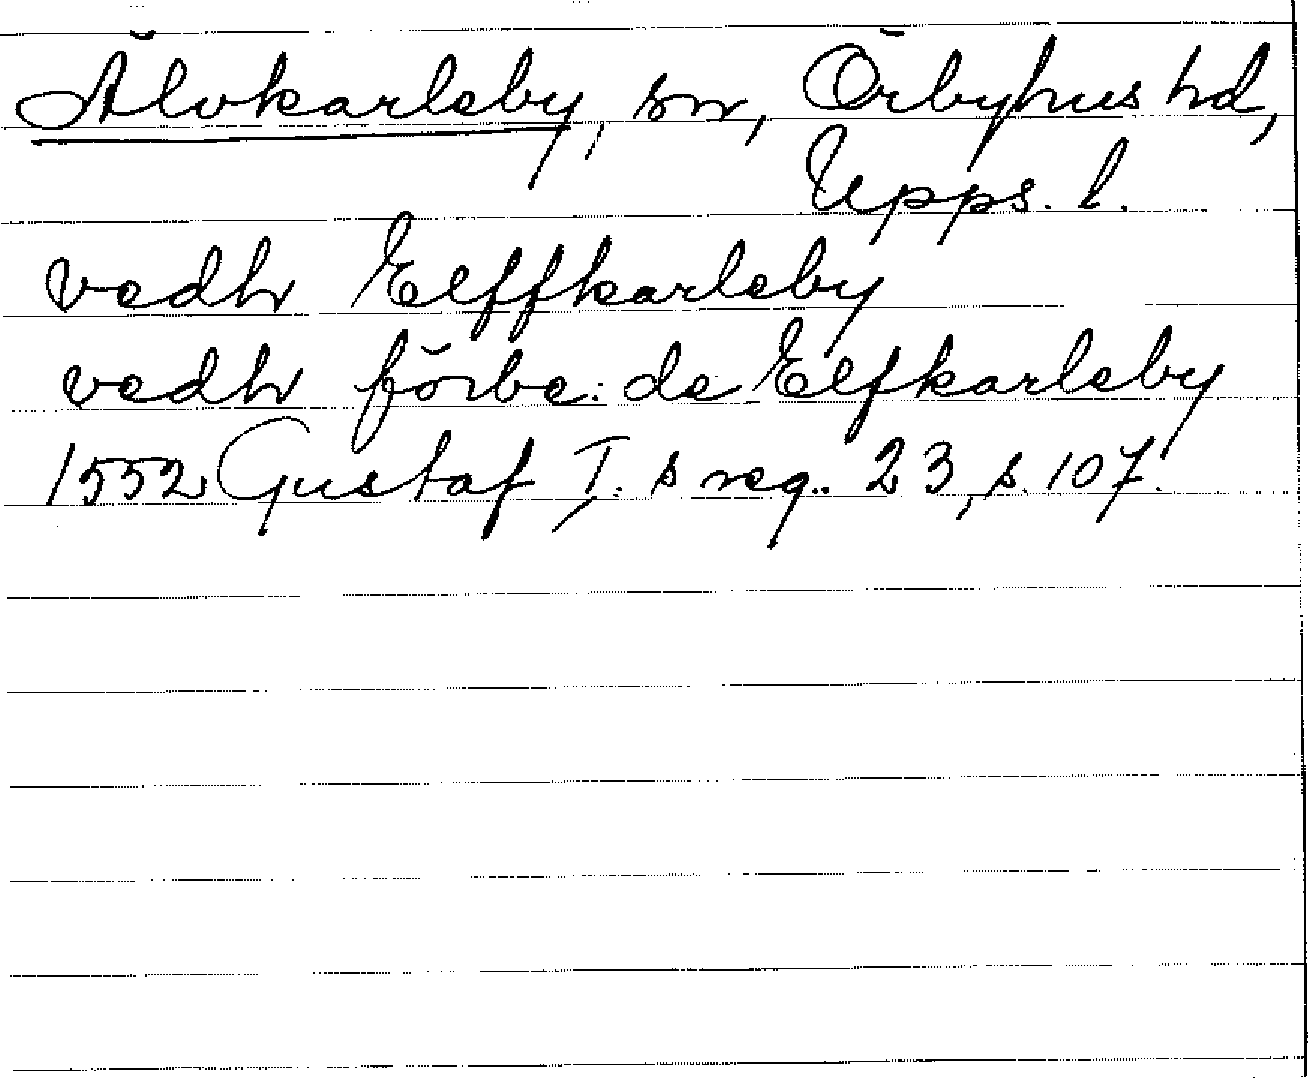 Älvkarleby, sn, Örbyhus hd,
Upps. l.
vedh Elffkarleby
vedh förbe: de Elfkarleby
1552 Gustaf I. s reg. 23, s. 107.